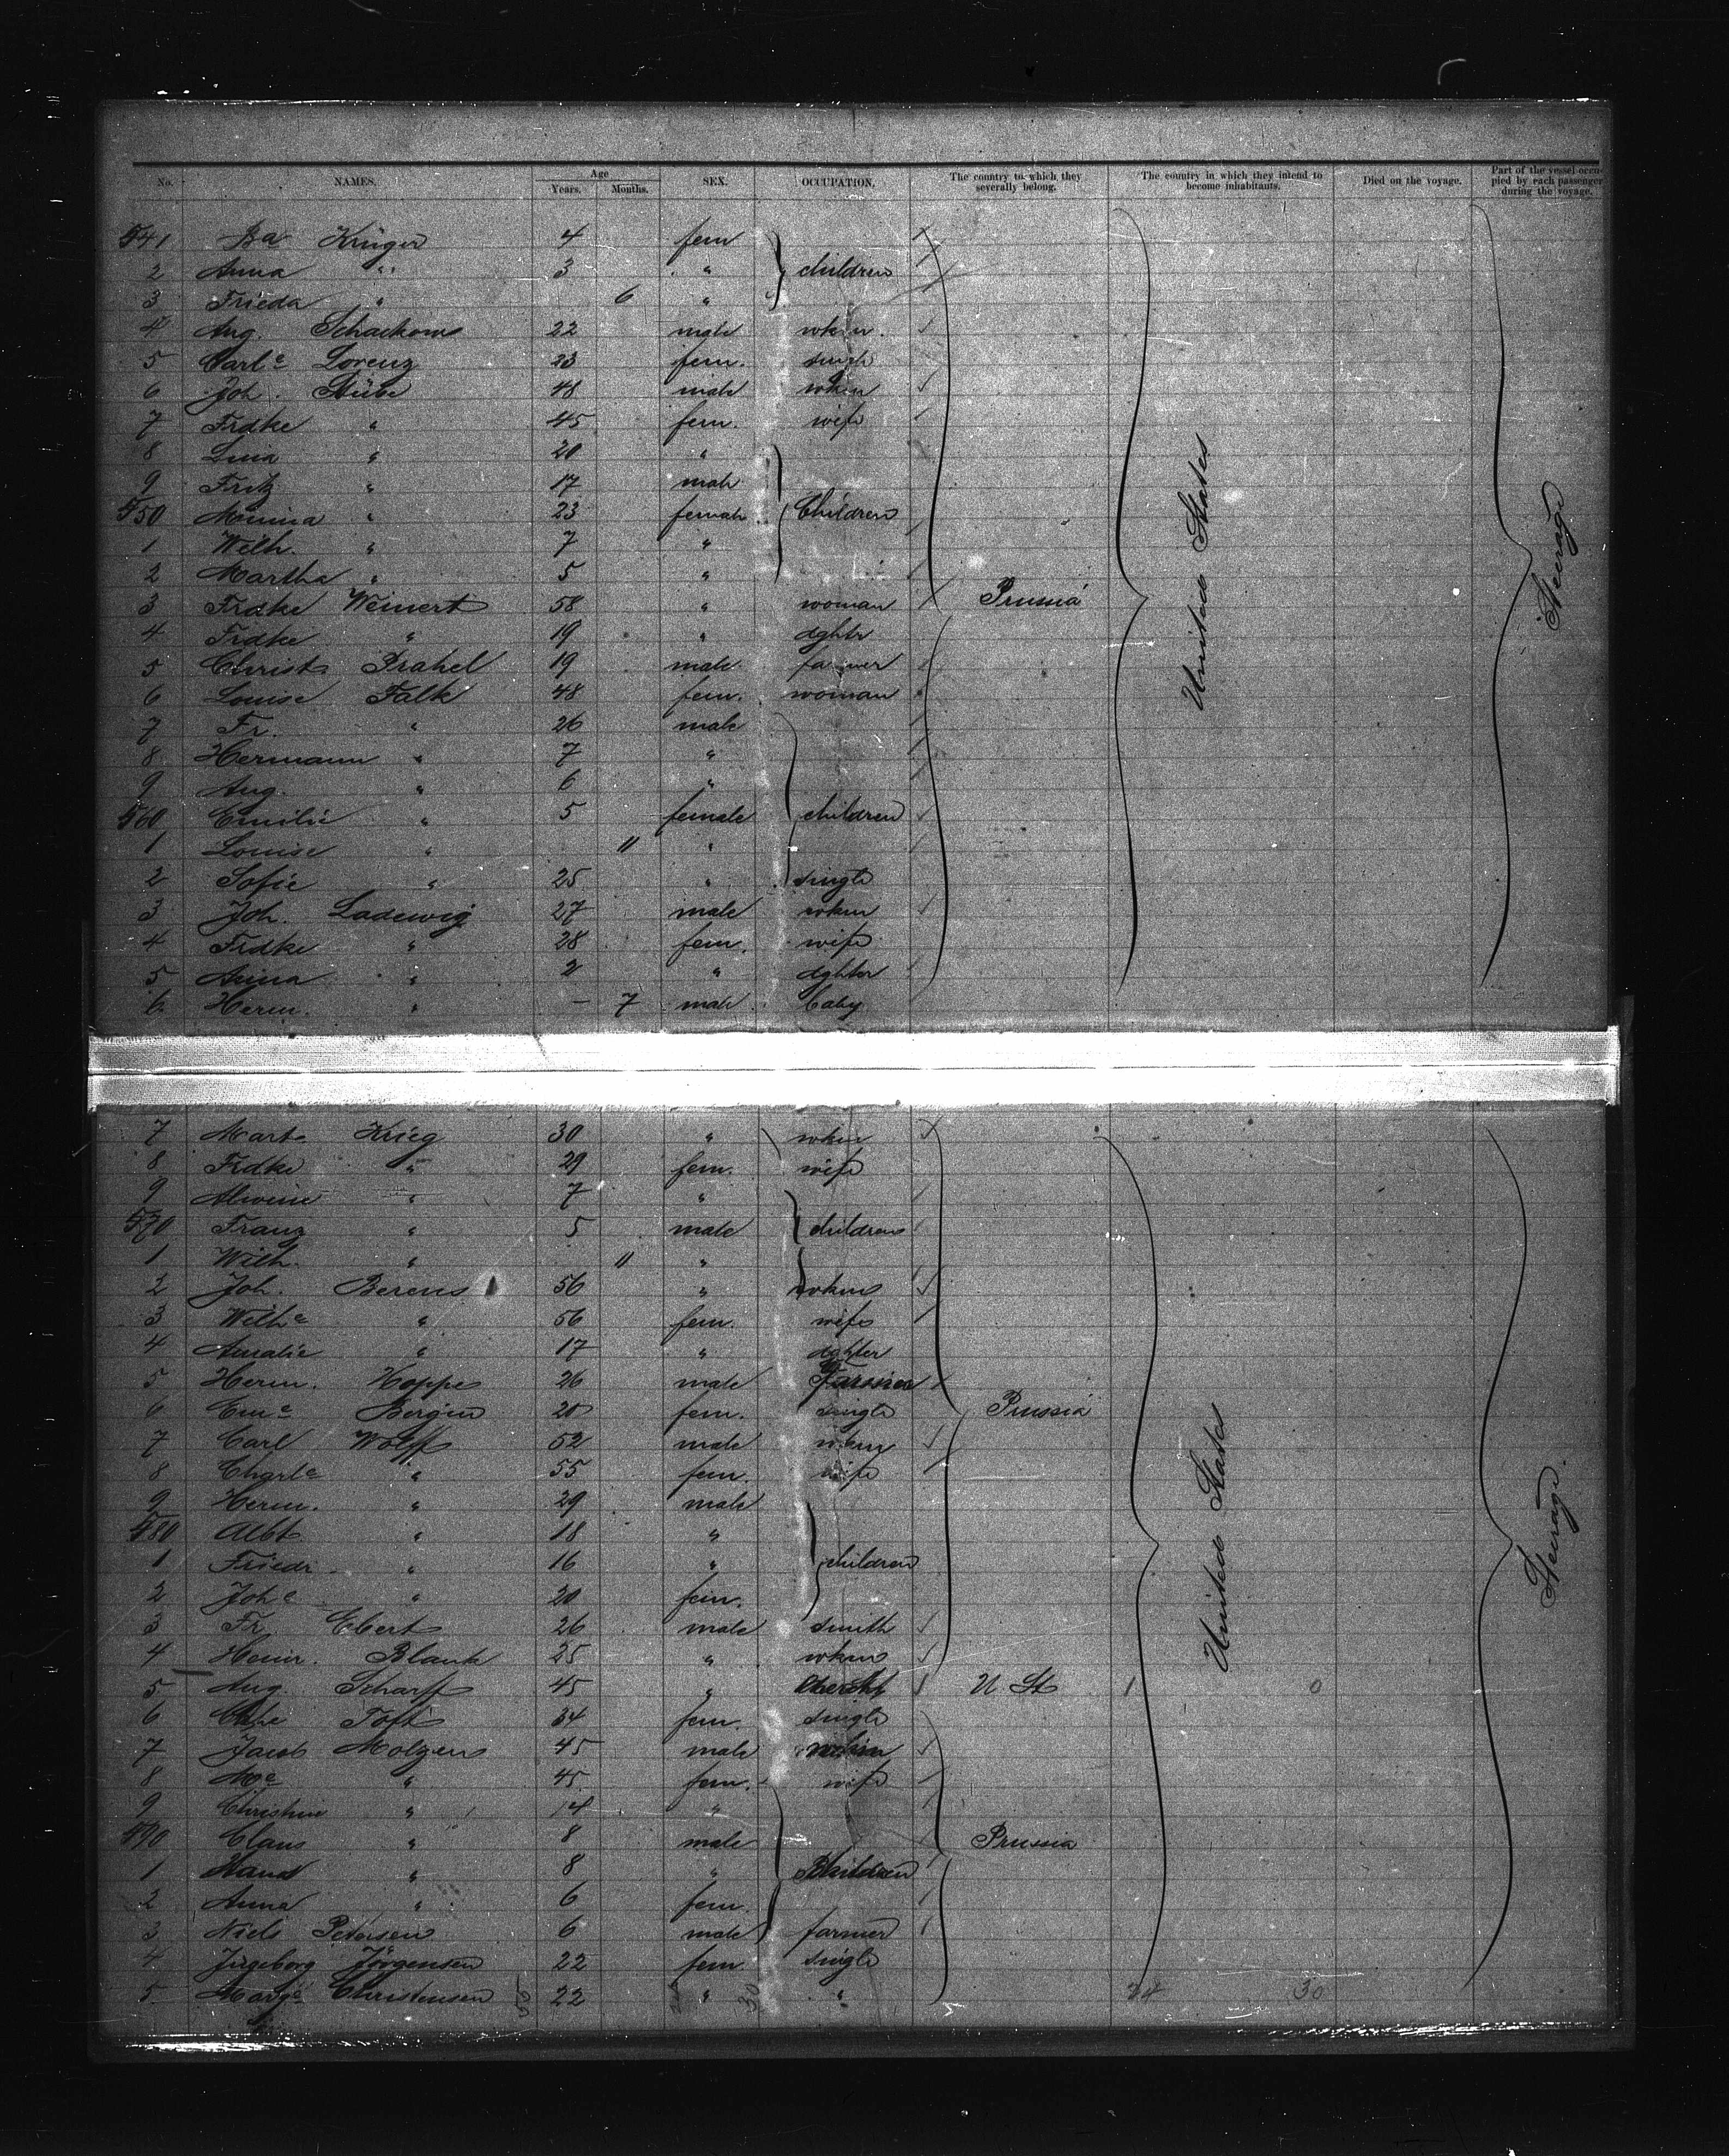 No. NAMES. Age Years. Months. SEX. OCCUPATION. The country to which they severally belong. The country in which they intend to become inhabitants. Died on the voyage. Part of the vessel occupied by each passenger during the voyage.
541 Ba Krüger 4 fem
2 Anna " 3 " children
3 Frieda " 6 "
4 Aug. 22 male wkm.
5 Carl e Lorenz 23 fem. single
6 Joh. Stübe 48 male wkm
7 Frdke " 45 fem. wife
8 Lina " 20 "
9 Fritz " 17 male
550 Minna " 23 female Children
1 Wilh. " 7 "
2 Martha " 5 "
3 Frdke Weinert 58 " woman Prussia United States Steerage
4 Frdke " 19 " dghtr
5 Christ. Prahel 19 male farmer
6 Louise Falk 48 fem. woman
7 Fr. " 26 male
8 Hermann " 7 "
9 Aug. " 6 "
560 Emilie " 5 female children
1 Louise " 11 "
2 Sofie " 25 " single
3 Joh. Ladewig 27 male wkm
4 Frdke " 28 fem. wife
5 Anna " 2 " dghter
6 Herm. " - 7 male baby
7 Mart. Krieg 30 " wkm
8 Frdke " 29 fem. wife
9 Alwine " 7 "
570 Franz " 5 male children
1 Wilh. " 11 "
2 Joh. Berens 56 " wkm
3 Wilh e " 56 fem. wife
4 Amalie " 17 " dghter
5 Herm. Hoppe 26 male Farmer
6 Em e 20 fem. single Prussia
7 Carl Wolff 52 male wkm
8 Charl e " 55 fem. wife
9 Herm. " 29 male United States Steerage.
580 Albt. " 18 "
1 Friedr. " 16 " children
2 Joh e " 20 fem.
3 Fr. Ebert 26 male smith
4 Heinr. Blank 25 " wkm
5 Aug. Scharff 45 " U St 1 0
6 Toft 34 fem. single
7 Jacob Molzen 45 male wkm
8 M e " 45 fem. wife
9 Christine " 14 "
590 Claus " 8 male Prussia
1 Hans " 8 " Children
2 Anna " 6 fem.
3 Niels Petersen 6 male farmer
4 Jngeborg Jörgensen 22 fem. single
5 Marg e Christensen 22 " " 30